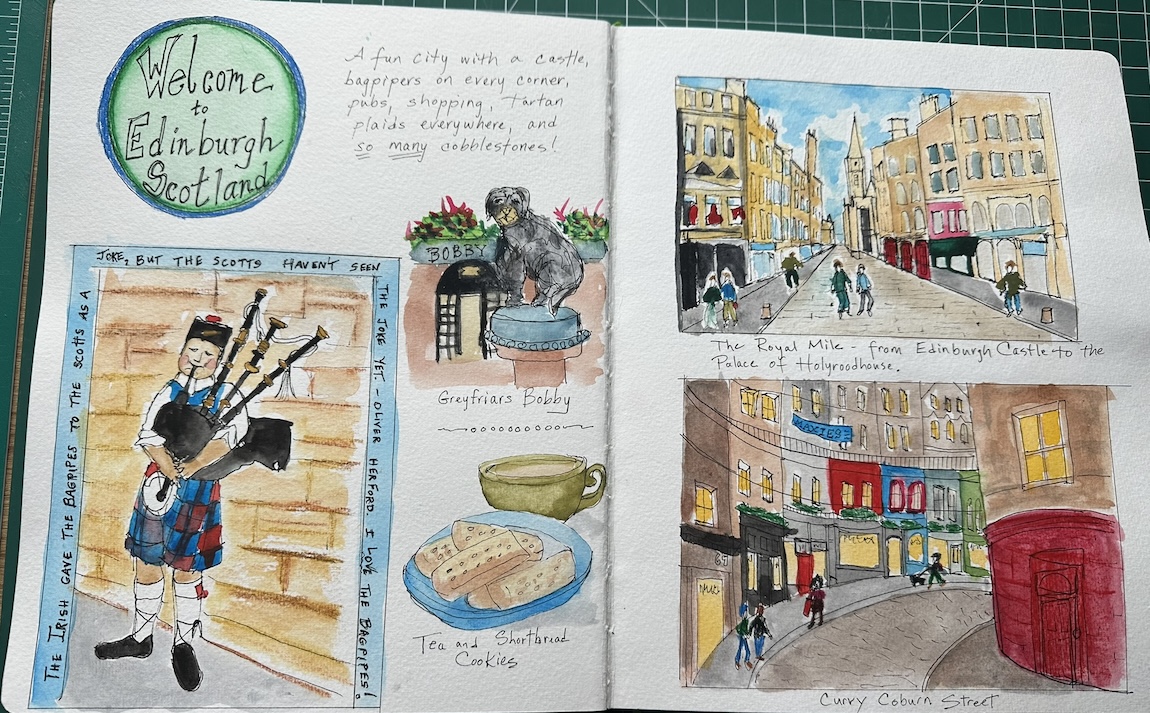 Welcome
to
Edinburgh
Scotland
A fun city with a castle,
bagpipers on every corner,
pubs, shopping, Tartan
plaids everywhere, and
so many cobblestones!
THE IRISH GAVE THE BAGPIPES TO THE SCOTTS AS A
JOKE, BUT THE SCOTTS HAVEN'T SEEN
THE JOKE YET. - OLIVER HERFORD. I LOVE THE BAGPIPES!
BOBBY
Greyfriars Bobby
Tea and Shortbread
Cookies
The Royal Mile - from Edinburgh Castle to the
Palace of Holyroodhouse.
69
Curvy Coburn Street